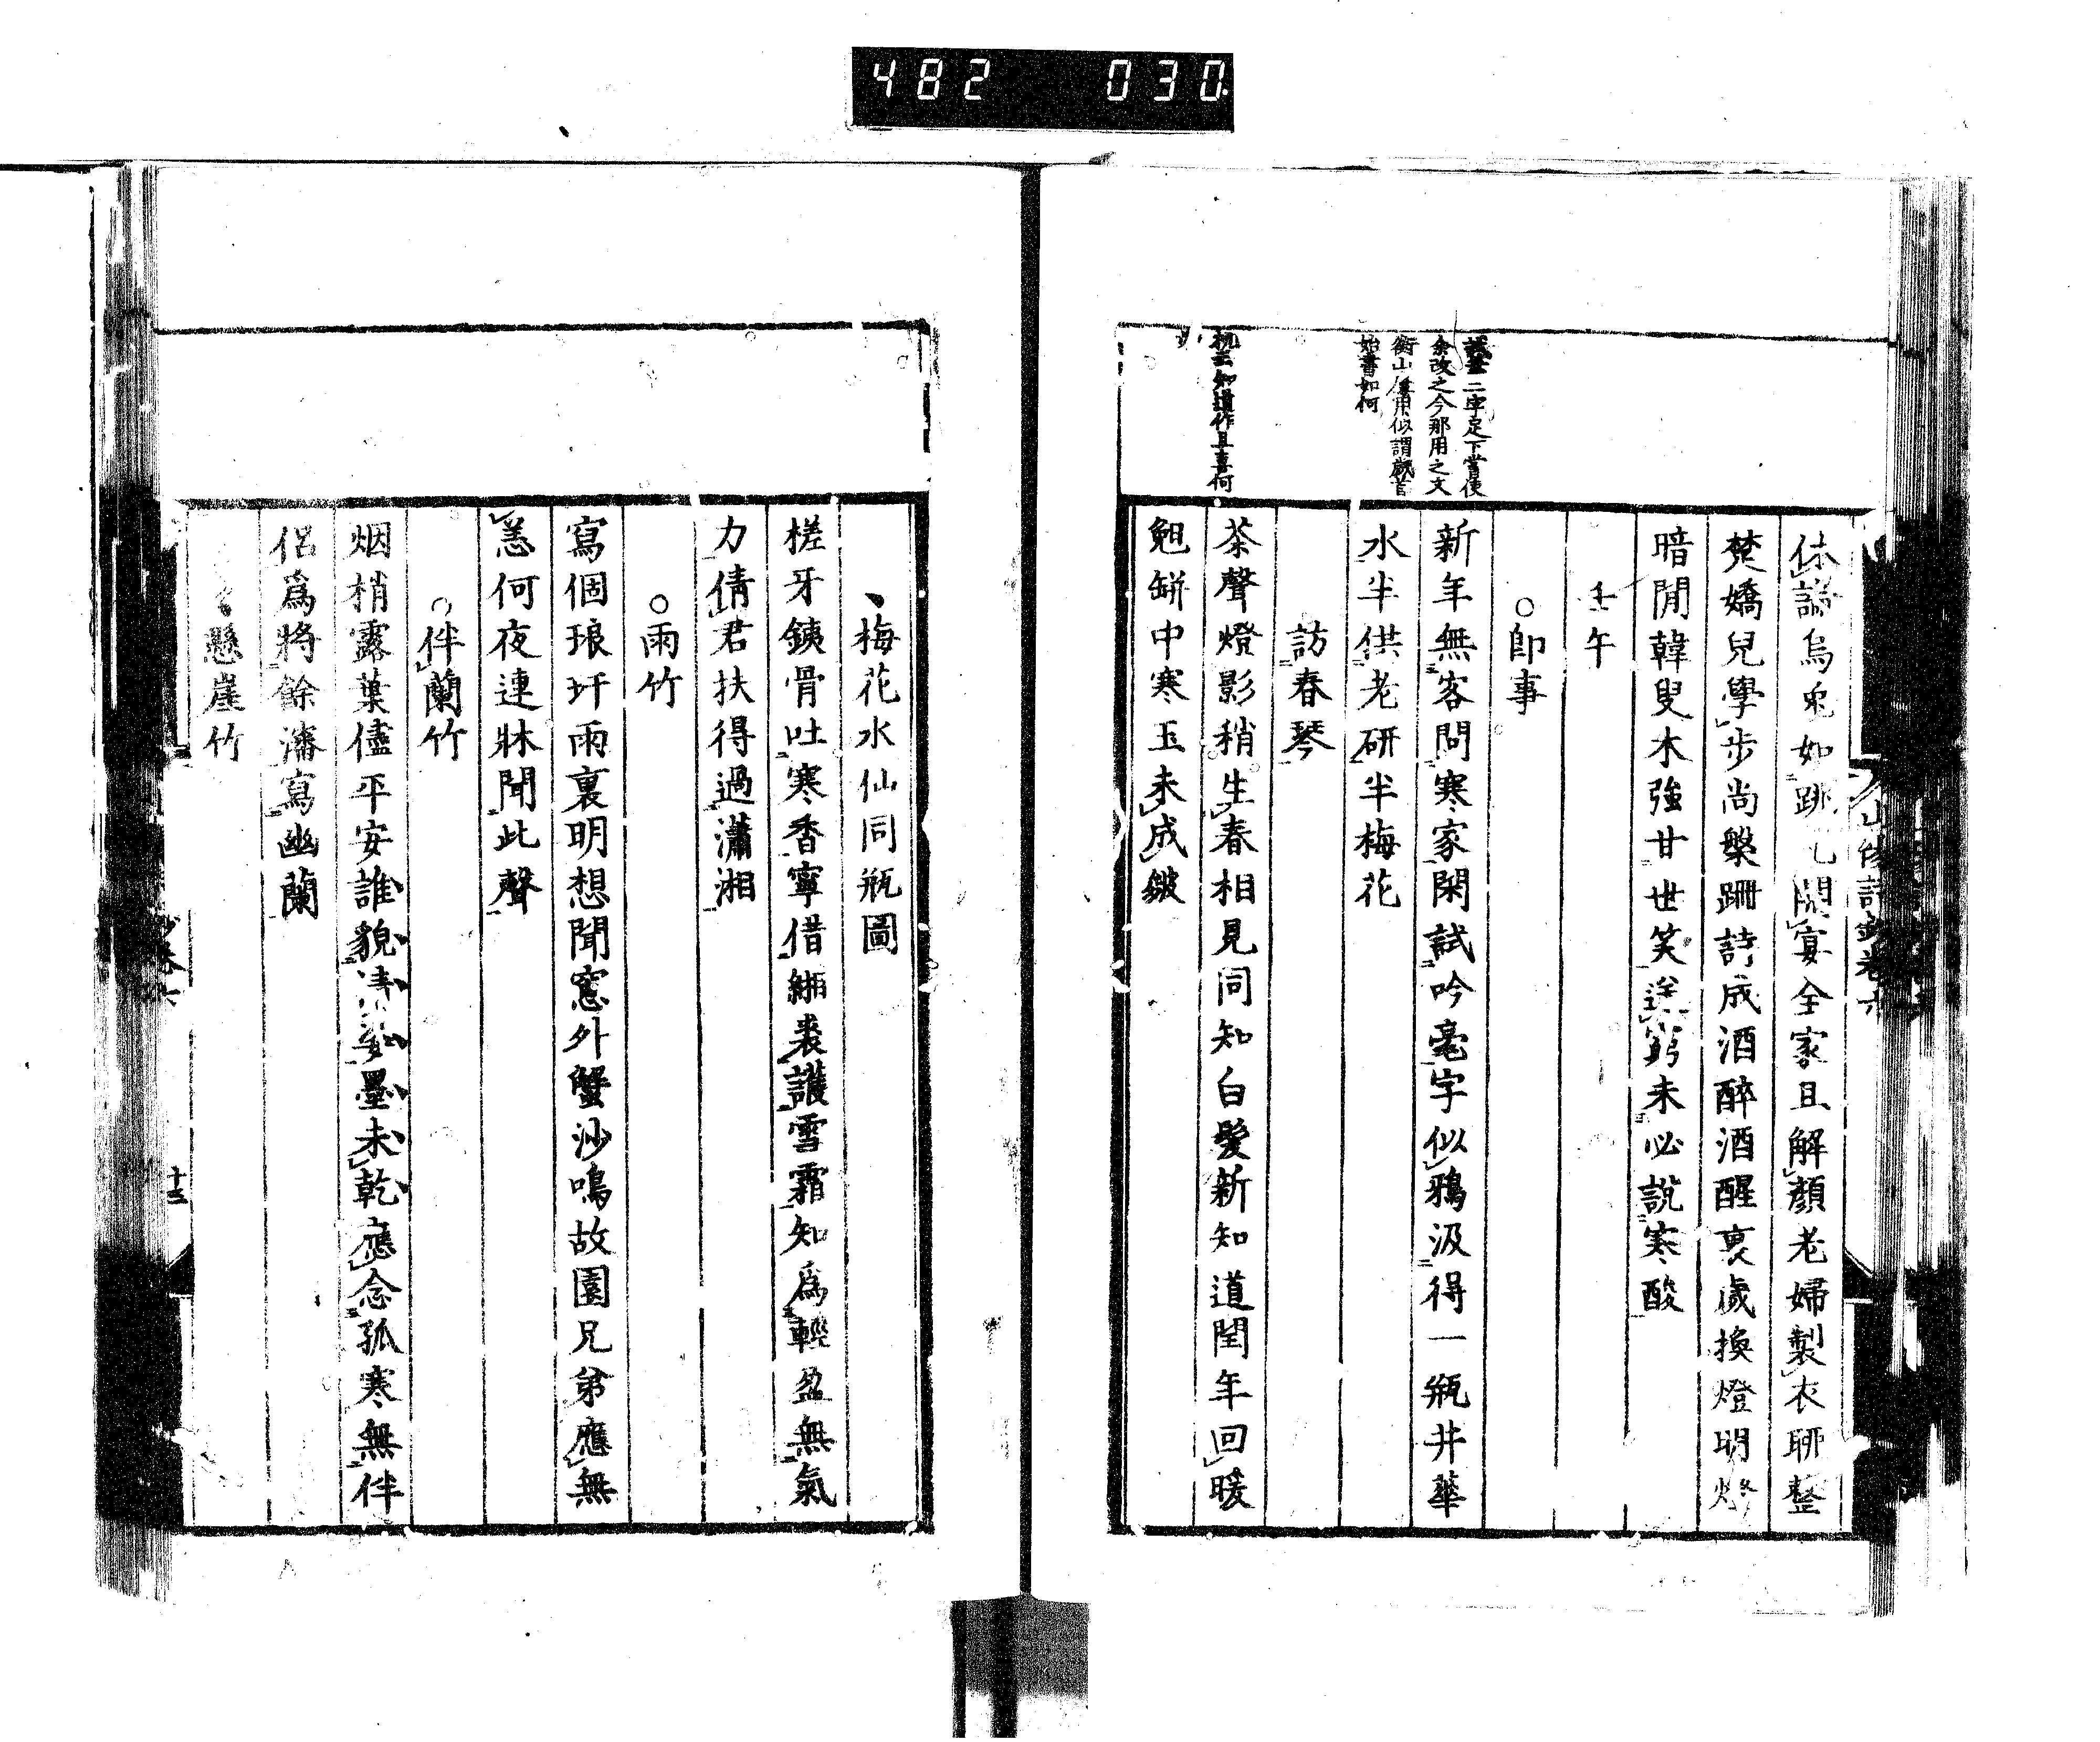 482 030
試筆二字足下嘗使
余改之今那用之文
衡山屢用似謂歲首
始書如何
杭云知道作且喜何
休論烏兔如跳丸開宴全家且解顏老婦製衣聊整
楚嬌兒學步尚槃跚詩成酒醉酒醒裏歲換燈明燈
暗間韓叟木強甘世笑送窮未必說寒酸
壬午
○卽事
新年無客問寒家閑試吟毫字似鴉汲得一瓶井華
水半供老硏半梅花
訪春琴
茶聲燈影稍生春相見同知白髮新知道閏年回暖
𩿅缾中寒玉未成皴
梅花水仙同瓶圖
槎牙鐵骨吐寒香寧借緗裘護雪霜知爲輕盈無氣
力倩君扶得過瀟湘
○雨竹
寫個琅玕雨裏明想聞窻外蟹沙鳴故園兄弟應無
恙何夜連牀聞此聲
○伴蘭竹
烟梢露葉儘平安誰貌淸姿墨未乾應念孤寒無伴
侶爲將餘瀋寫幽蘭
懸崖竹
十三